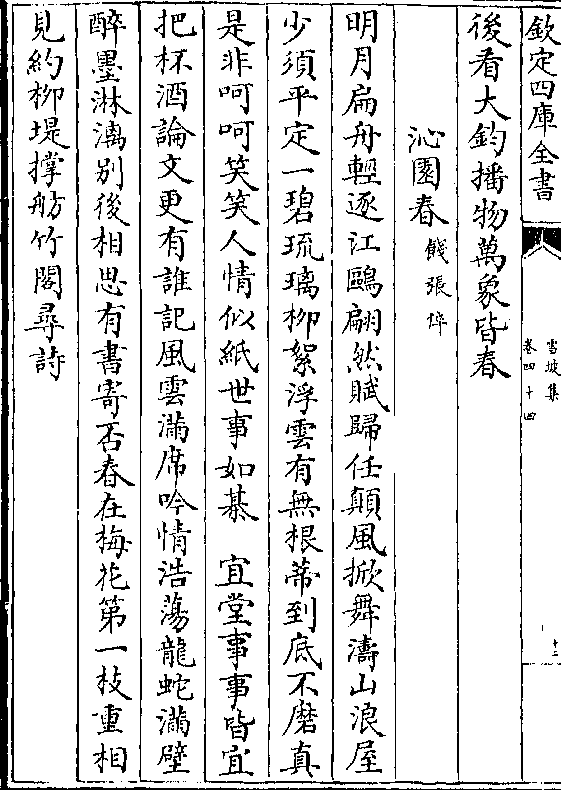 欽定四庫全書
雪坡集
卷四十四
十二
後看大鈞播物萬象皆春
沁園春餞張倅
明月扁舟輕逐江鷗翩然賦歸任顛風掀舞濤山浪屋
少須平定一碧琉璃柳絮浮雲有無根蒂到底不磨真
是非呵呵笑笑人情似紙世事如棊 宜堂事事皆宜
把杯酒論文更有誰記風雲滿席吟情浩蕩龍蛇滿壁
醉墨淋漓别後相思有書寄否春在梅花第一枝重相
見約柳堤撑舫竹閣尋詩